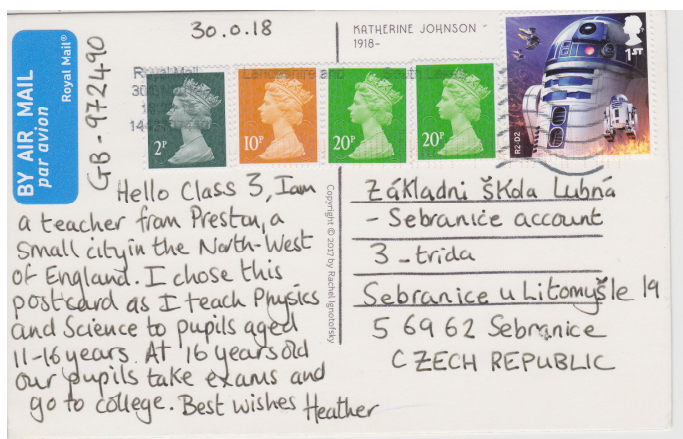 30.0.18
KATHERINE JOHNSON
1918–
BY AIR MAIL
par avion
Royal Mail®
GB-972490
Royal Mail
Lancashire and
South
2P
10P
20P
20P
1ST
R2-D2
Hello Class 3, I am
a teacher from Preston, a
small city in the North-West
of England. I chose this
postcard as I teach Physics
and Science to pupils aged
11-16 years. At 16 years old
our pupils take exams and
go to college. Best wishes Heather
Copyright © 2017 by Rachel Ignotofsky
Základni škola Lubná
- Sebranice account
3 - trida
Sebranice u Litomyšle 19
5 69 62 Sebranice
CZECH REPUBLIC